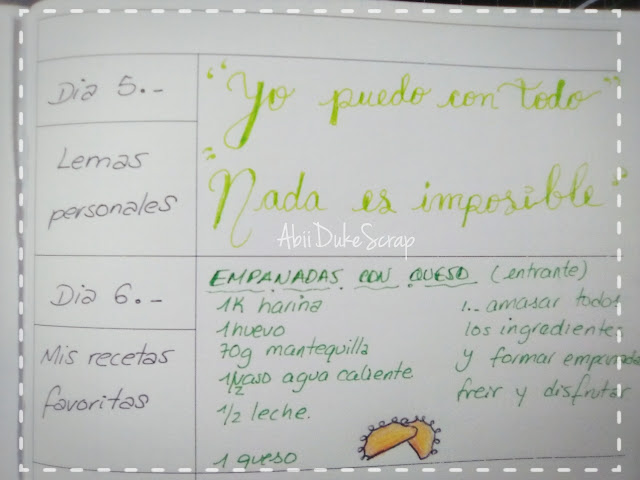 Dia 5.-
Lemas
personales
"Yo puedo con todo"
"Nada es imposible"
Abii Duke Scrap
Dia 6.-
Mis recetas
favoritas
EMPANADAS CON QUESO (entrante)
1K harina
1 huevo
70g mantequilla
1 1/2 vaso agua caliente
1/2 leche.
1 queso
1.- amasar todos
los ingredientes
y formar empanadas
freir y disfrutar